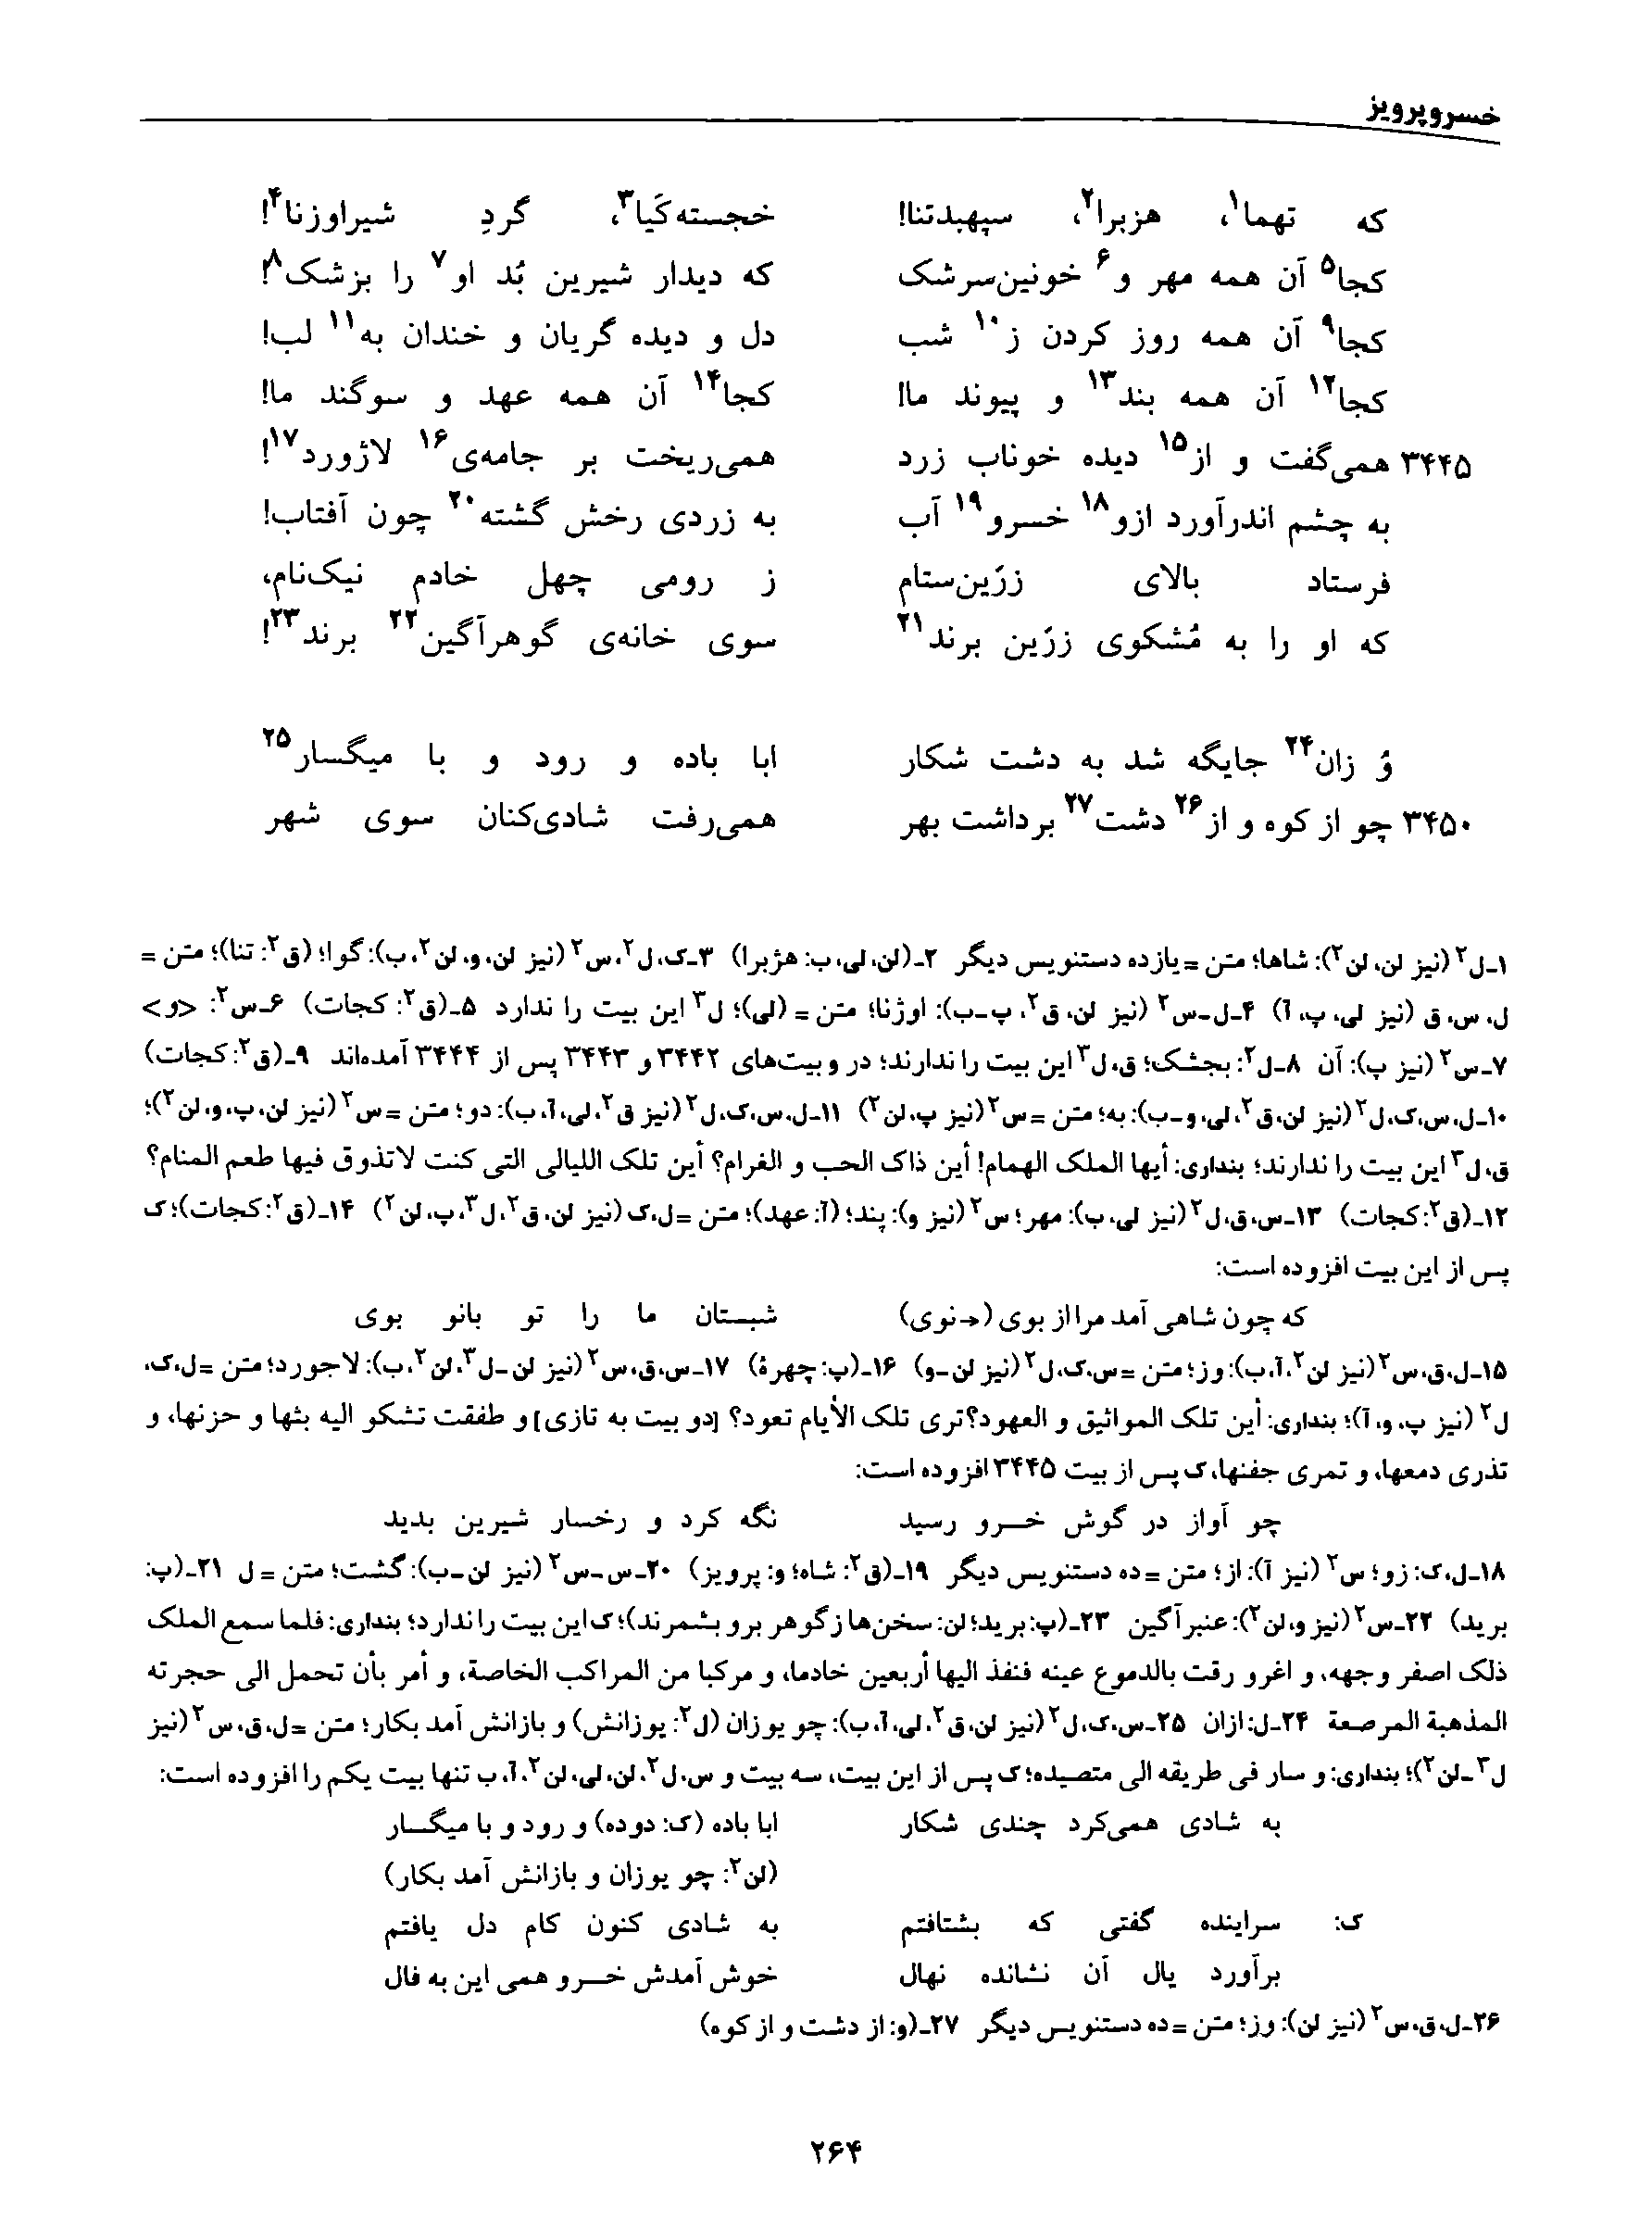 خسرو پرویز
که تهما۱، هزبرا۲، سپهبدتنا! خجسته‌کیا۳، گردِ شیراوزنا۴!
کجا۵ آن همه مهر و۶ خونین‌سرشک که دیدار شیرین بُد او۷ را بزشک۸!
کجا۹ آن همه روز کردن ز۱۰ شب دل و دیده گریان و خندان به۱۱ لب!
کجا۱۲ آن همه بند۱۳ و پیوند ما! کجا۱۴ آن همه عهد و سوگند ما!
۳۴۴۵ همی‌گفت و از۱۵ دیده خوناب زرد همی‌ریخت بر جامه‌ی۱۶ لاژورد۱۷!
به چشم اندرآورد ازو۱۸ خسرو۱۹ آب به زردی رخش گشته۲۰ چون آفتاب!
فرستاد بالای زرّین‌ستام ز رومی چهل خادم نیک‌نام،
که او را به مُشکوی زرّین برند۲۱ سوی خانه‌ی گوهرآگین۲۲ برند۲۳!
وُ زان۲۴ جایگه شد به دشت شکار ابا باده و رود و با میگسار۲۵
۳۴۵۰ چو از کوه و از۲۶ دشت۲۷ برداشت بهر همی‌رفت شادی‌کنان سوی شهر
۱ـ ل۲ (نیز لن، لن۲): شاها؛ متن = یازده دستنویس دیگر ۲ـ (لن، لی، ب: هژبرا) ۳ـ ک، ل۲، س۲ (نیز لن، و، لن۲، ب): گوا؛ (ق۲: تنا)؛ متن =
ل، س، ق (نیز لی، پ، آ) ۴ـ ل ـ س۲ (نیز لن، ق۲، پ ـ ب): اوژنا؛ متن = (لی)؛ ل۳ این بیت را ندارد ۵ـ (ق۲: کجات) ۶ـ س۲: <و>
۷ـ س۲ (نیز پ): آن ۸ـ ل۲: بجشک؛ ق، ل۳ این بیت را ندارند؛ در و بیت‌های ۳۴۴۲ و ۳۴۴۳ پس از ۳۴۴۴ آمده‌اند ۹ـ (ق۲: کجات)
۱۰ـ ل، س، ک، ل۲ (نیز لن، ق۲، لی، و ـ ب): به؛ متن = س۲ (نیز پ، لن۲) ۱۱ـ ل، س، ک، ل۲ (نیز ق۲، لی، آ، ب): دو؛ متن = س۲ (نیز لن، پ، و، لن۲)؛
ق، ل۳ این بیت را ندارند؛ بنداری: أیها الملک الهمام! أین ذاک الحب و الغرام؟ أین تلک اللیالی التی کنت لاتذوق فیها طعم المنام؟
۱۲ـ (ق۲: کجات) ۱۳ـ س، ق، ل۲ (نیز لی، ب): مهر؛ س۲ (نیز و): پند؛ (آ: عهد)؛ متن = ل، ک (نیز لن، ق۲، ل۳، پ، لن۲) ۱۴ـ (ق۲: کجات)؛ ک
پس از این بیت افزوده است:
که چون شاهی آمد مرا از بوی (→ نوی) شبستان ما را تو بانو بوی
۱۵ـ ل، ق، س۲ (نیز لن۲، آ، ب): وز؛ متن = س، ک، ل۲ (نیز لن ـ و) ۱۶ـ (پ: چهرهٔ) ۱۷ـ س، ق، س۲ (نیز لن ـ ل۳، لن۲، ب): لاجورد؛ متن = ل، ک،
ل۲ (نیز پ، و، آ)؛ بنداری: أین تلک المواثیق و العهود؟ تری تلک الأیام تعود؟ [دو بیت به تازی] و طفقت تشکو الیه بثها و حزنها، و
تذری دمعها، و تمری جفنها، ک پس از بیت ۳۴۴۵ افزوده است:
چو آواز در گوش خسرو رسید نگه کرد و رخسار شیرین بدید
۱۸ـ ل، ک: زو؛ س۲ (نیز آ): از؛ متن = ده دستنویس دیگر ۱۹ـ (ق۲: شاه؛ و: پرویز) ۲۰ـ س ـ س۲ (نیز لن ـ ب): گشت؛ متن = ل ۲۱ـ (پ:
برید) ۲۲ـ س۲ (نیز و، لن۲): عنبرآگین ۲۳ـ (پ: برید؛ لن: سخن‌ها ز گوهر برو بشمرند)؛ ک این بیت را ندارد؛ بنداری: فلما سمع الملک
ذلک اصفر وجهه، و اغرورقت بالدموع عینه فنفذ الیها أربعین خادما، و مرکبا من المراکب الخاصة، و أمر بأن تحمل الی حجرته
المذهبة المرصعة ۲۴ـ ل: ازان ۲۵ـ س، ک، ل۲ (نیز لن، ق۲، لی، آ، ب): چو یوزان (ل۲: یوزانش) و بازانش آمد بکار؛ متن = ل، ق، س۲ (نیز
ل۳ ـ لن۲)؛ بنداری: و سار فی طریقه الی متصیده؛ ک پس از این بیت، سه بیت و س، ل۲، لن، لی، لن۲، آ، ب تنها بیت یکم را افزوده است:
به شادی همی‌کرد چندی شکار ابا باده (ک: دوده) و رود و با میگسار
(لن۲: چو یوزان و بازانش آمد بکار)
ک: سراینده گفتی که بشتافتم به شادی کنون کام دل یافتم
برآورد یال آن نشانده نهال خوش آمدش خسرو همی این به فال
۲۶ـ ل، ق، س۲ (نیز لن): وز؛ متن = ده دستنویس دیگر ۲۷ـ (و: از دشت و از کوه)
۲۶۴